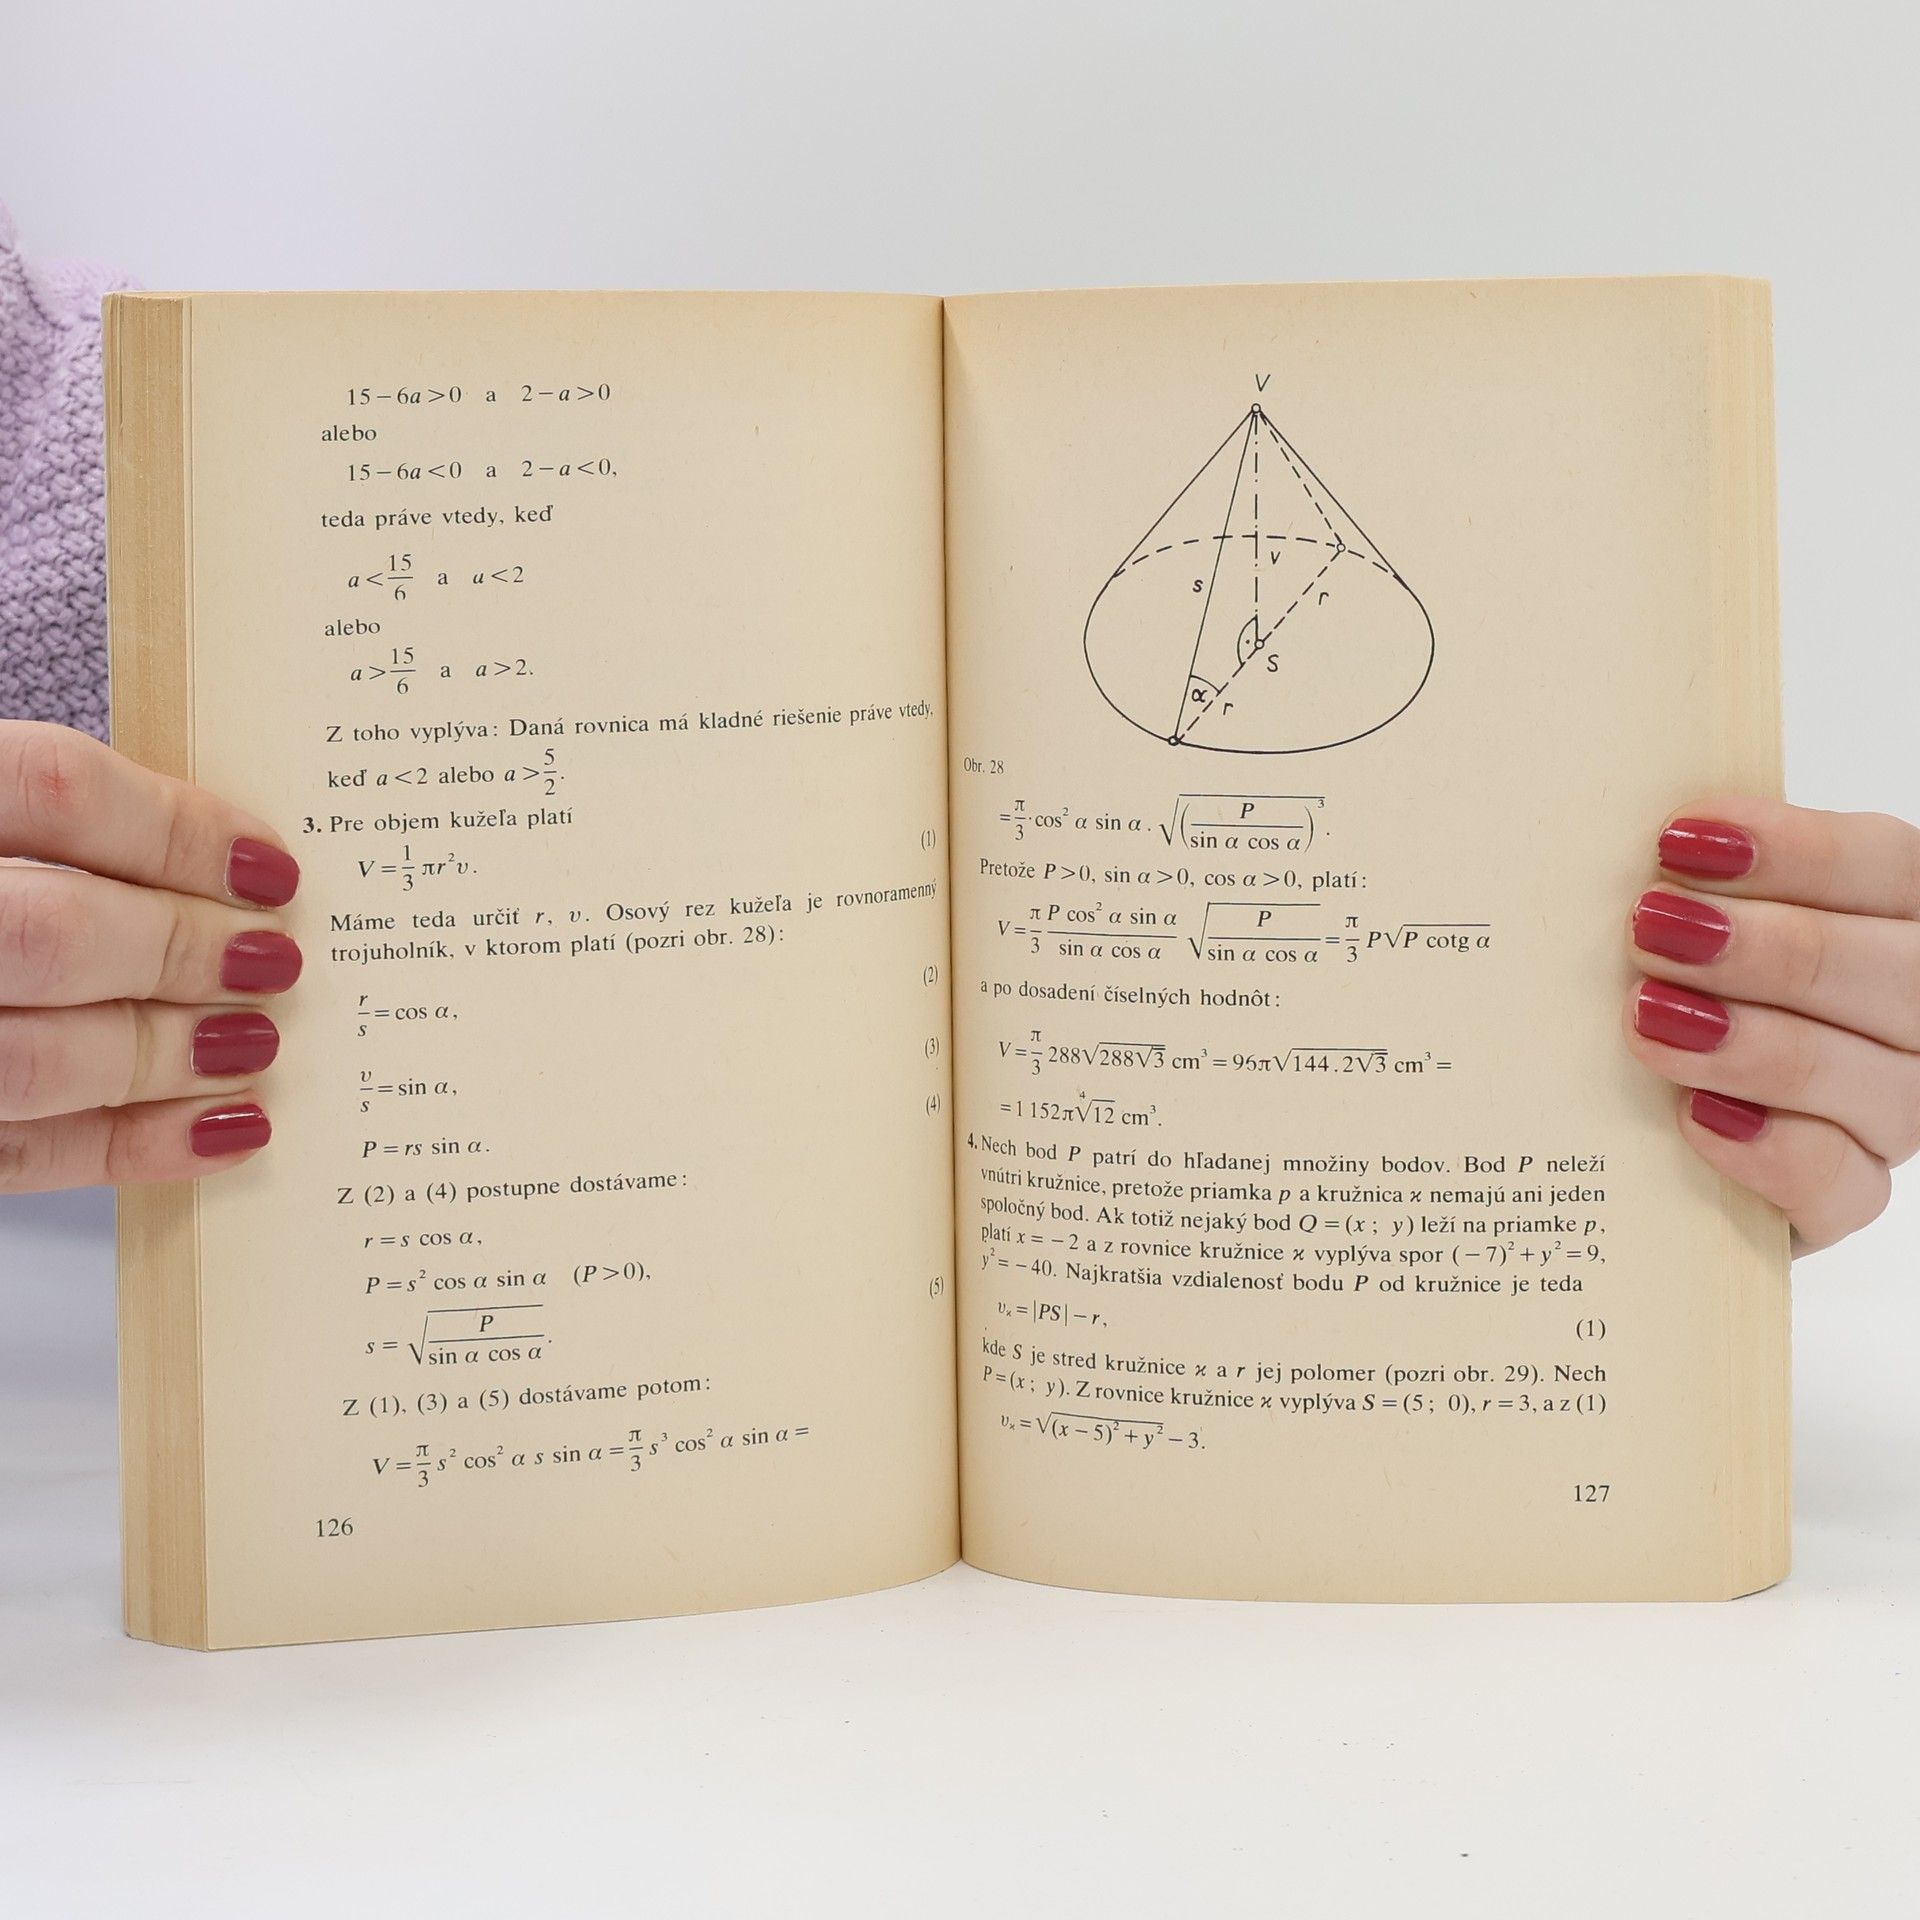 15−6a>0 a 2−a>0
alebo
15−6a<0 a 2−a<0,
teda práve vtedy, keď
a<15/6 a a<2
alebo
a>15/6 a a>2.
Z toho vyplýva: Daná rovnica má kladné riešenie práve vtedy,
keď a<2 alebo a>5/2.
3. Pre objem kužeľa platí
V=1/3 πr²v. (1)
Máme teda určiť r, v. Osový rez kužeľa je rovnoramenný
trojuholník, v ktorom platí (pozri obr. 28):
r/s=cos α, (2)
v/s=sin α, (3)
P=rs sin α. (4)
Z (2) a (4) postupne dostávame:
r=s cos α,
P=s² cos α sin α (P>0),
s=√(P/(sin α cos α)). (5)
Z (1), (3) a (5) dostávame potom:
V=π/3 s² cos² α s sin α=π/3 s³ cos² α sin α=
126
V
s
v
r
S
α
r
Obr. 28
=π/3·cos² α sin α.√((P/(sin α cos α))³).
Pretože P>0, sin α>0, cos α>0, platí:
V=π/3 (P cos² α sin α)/(sin α cos α) √(P/(sin α cos α))=π/3 P√(P cotg α)
a po dosadení číselných hodnôt:
V=π/3 288√(288√3) cm³=96π√(144.2√3) cm³=
=1 152π⁴√12 cm³.
4. Nech bod P patrí do hľadanej množiny bodov. Bod P neleží
vnútri kružnice, pretože priamka p a kružnica ϰ nemajú ani jeden
spoločný bod. Ak totiž nejaký bod Q=(x; y) leží na priamke p,
platí x=−2 a z rovnice kružnice ϰ vyplýva spor (−7)²+y²=9,
y²=−40. Najkratšia vzdialenosť bodu P od kružnice je teda
vϰ=|PS|−r, (1)
kde S je stred kružnice ϰ a r jej polomer (pozri obr. 29). Nech
P=(x; y). Z rovnice kružnice ϰ vyplýva S=(5; 0), r=3, a z (1)
vϰ=√((x−5)²+y²)−3.
127